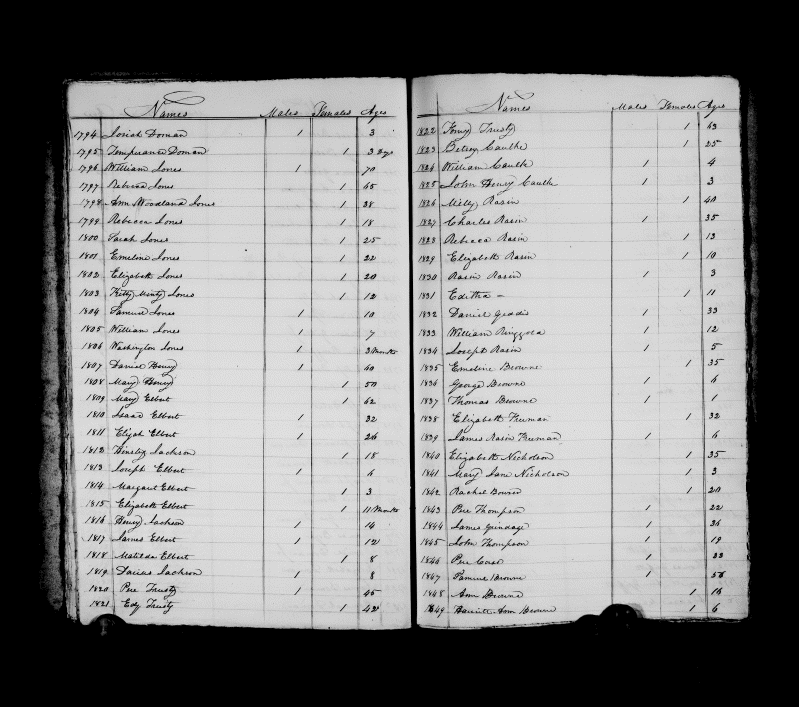 Names Males Females Ages
1794 Josiah Doman 1 3
1795 Temperance Doman 1 3 Dys
1796 William Jones 1 70
1797 Rebecca Jones 1 65
1798 Ann Woodland Jones 1 38
1799 Rebecca Jones 1 18
1800 Sarah Jones 1 25
1801 Emeline Jones 1 22
1802 Elizabeth Jones 1 20
1803 Kitty Minty Jones 1 12
1804 Samuel Jones 1 10
1805 William Jones 1 7
1806 Washington Jones 1 3 Months
1807 Daniel Henry 1 40
1808 Mary Henry 1 50
1809 Mary Elbert 1 62
1810 Isaac Elbert 1 32
1811 Elijah Elbert 1 26
1812 Jackson 1 18
1813 Joseph Elbert 1 6
1814 Margaret Elbert 1 3
1815 Elizabeth Elbert 1 11 Months
1816 Henry Jackson 1 14
1817 James Elbert 1 12
1818 Matilda Elbert 1 8
1819 Darius Jackson 1 8
1820 Pere Trusty 1 45
1821 Edy Trusty 1 42
Names Males Females Ages
1822 Trusty 1 63
1823 Betsey Caulke 1 25
1824 William Caulk 1 4
1825 John Henry Caulk 1 3
1826 Milly Rasin 1 40
1827 Charles Rasin 1 35
1828 Rebecca Rasin 1 13
1829 Elizabeth Rasin 1 10
1830 Rasin Rasin 1 3
1831 Editha – 1 11
1832 Daniel Geddis 1 33
1833 William Ringgold 1 12
1834 Joseph Rasin 1 5
1835 Emeline Browne 1 35
1836 George Browne 1 6
1837 Thomas Browne 1 1
1838 Elizabeth Freeman 1 32
1839 James Rasin Freeman 1 6
1840 Elizabeth Nicholson 1 35
1841 Mary Jane Nicholson 1 3
1842 Rachel Bowser 1 20
1843 Pere Thompson 1 22
1844 James Grindage 1 36
1845 John Thompson 1 19
1846 Pere 1 33
1847 Browne 1 56
1848 Ann Browne 1 16
1849 Harriett Ann Browne 1 6